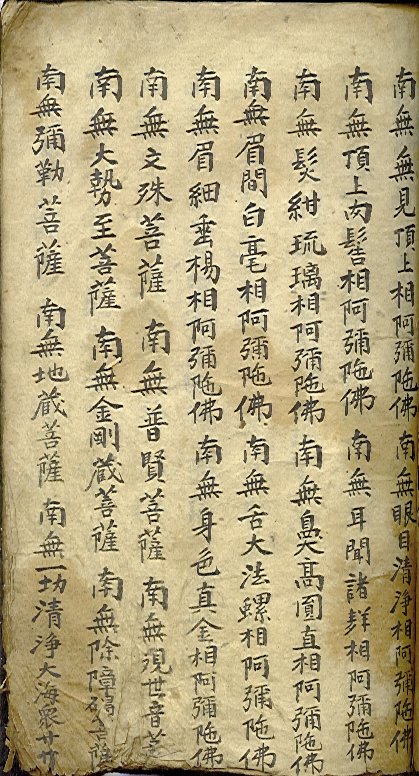 南無無見頂上相阿彌陁佛 南無眼目清淨相阿彌陁佛
南無頂上肉髻相阿彌陁佛 南無耳聞諸聲相阿彌陁佛
南無髮紺琉璃相阿彌陁佛 南無鼻高圓直相阿彌陁佛
南無眉間白毫相阿彌陁佛 南無舌大法螺相阿彌陁佛
南無眉細垂楊相阿彌陁佛 南無身色真金相阿彌陁佛
南無文殊菩薩 南無普賢菩薩 南無覌世音菩
南無大勢至菩薩 南無金剛藏菩薩 南無除障碍菩薩
南無彌勒菩薩 南無地藏菩薩 南無一切清淨大海衆